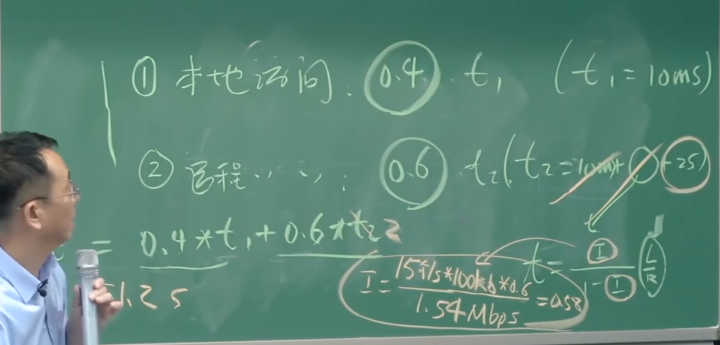 ① 本地访问: 0.4 · t₁ (t₁=10ms)
② 远程 〃 〃: 0.6 · t₂ (t₂=10ms+ +2s)
= 0.4*t₁+0.6*t₂
1.2s
I = 15个/s*100kb*0.6 / 1.54Mbps = 0.58
t = I / 1-I L/R